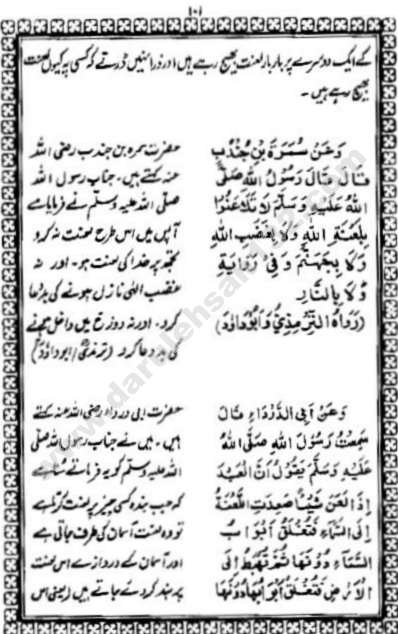 ۱۰۱
کے ایک دوسرے پر بار بار لعنت بھیج رہے ہیں اور ذرا نہیں ڈرتے کہ کسی پہ کیوں لعنت
بھیج رہے ہیں ۔
وَعَنْ سَمُرَةَ بْنِ جُنْدُبٍ
قَالَ قَالَ رَسُوْلُ اللهِ صَلَّى
اللهُ عَلَيْهِ وَسَلَّمَ لَا تَلَاعَنُوْا
بِلَعْنَةِ اللهِ وَلَا بِغَضَبِ اللهِ
وَلَا بِجَهَنَّمَ وَفِيْ رِوَايَةٍ
وَلَا بِالنَّارِ
(رَوَاهُ التِّرْمِذِيُّ وَاَبُوْدَاوٗدَ)
حضرت سمرہ بن جندب رضی اللہ
عنہ کہتے ہیں۔ جناب رسول اللہ
صلی اللہ علیہ وسلم نے فرمایا ہے
آپس میں اس طرح لعنت نہ کرو
تجھ پر خدا کی لعنت ہو۔ اور نہ
غضب الٰہی نازل ہونے کی بددعا
کرو۔ اور نہ دوزخ میں داخل ہونے
کی بددعا کرو (ترمذی/ابوداؤد)
وَعَنْ اَبِی الدَّرْدَاءِ قَالَ
سَمِعْتُ رَسُوْلَ اللهِ صَلَّى اللهُ
عَلَيْهِ وَسَلَّمَ يَقُوْلُ اِنَّ الْعَبْدَ
اِذَا لَعَنَ شَيْئًا صَعِدَتِ اللَّعْنَةُ
اِلَى السَّمَاءِ فَتُغْلَقُ اَبْوَابُ
السَّمَاءِ دُوْنَهَا ثُمَّ تَهْبِطُ اِلَى
الْاَرْضِ فَتُغْلَقُ اَبْوَابُهَا دُوْنَهَا
حضرت ابی درداء رضی اللہ عنہ کہتے
ہیں۔ میں نے جناب رسول اللہ صلی
اللہ علیہ وسلم کو یہ فرماتے سنا ہے
کہ جب بندہ کسی چیز پر لعنت کرتا ہے
تو وہ لعنت آسمان کی طرف جاتی ہے
اور آسمان کے دروازے اس لعنت
پر بند کر دیے جاتے ہیں (یعنی اس